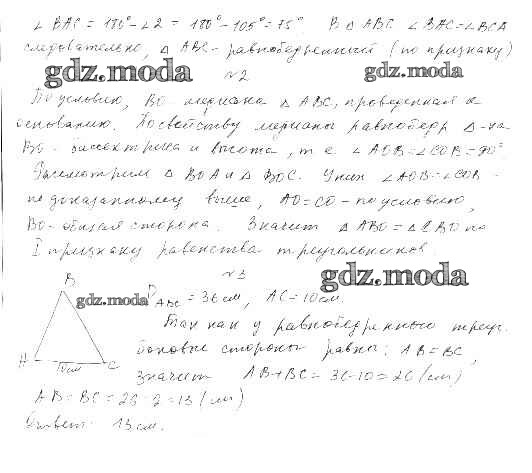 ∠BAC = 180° - ∠2 = 180° - 105° = 75°. В △ABC ∠BAC = ∠BCA
следовательно, △ABC - равнобедренный (по признаку)
gdz.moda
gdz.moda
№2
По условию, BO - медиана △ABC, проведенная к
основанию. По свойству медианы равнобедр △-ка
BO - биссектриса и высота, т. е ∠AOB = ∠COB = 90°.
Рассмотрим △BOA и △BOC. У них ∠AOB = ∠COB -
по доказанному выше, AO = CO - по условию,
BO - общая сторона. Значит △ABO = △CBO по
I признаку равенства треугольников
№3
gdz.moda
gdz.moda
B
P ABC = 36 см, AC = 10 см.
Так как у равнобедренного треуг.
боковые стороны равны: AB = BC,
A C
10 см
значит AB + BC = 36 - 10 = 26 (см)
AB = BC = 26 : 2 = 13 (см)
Ответ: 13 см.